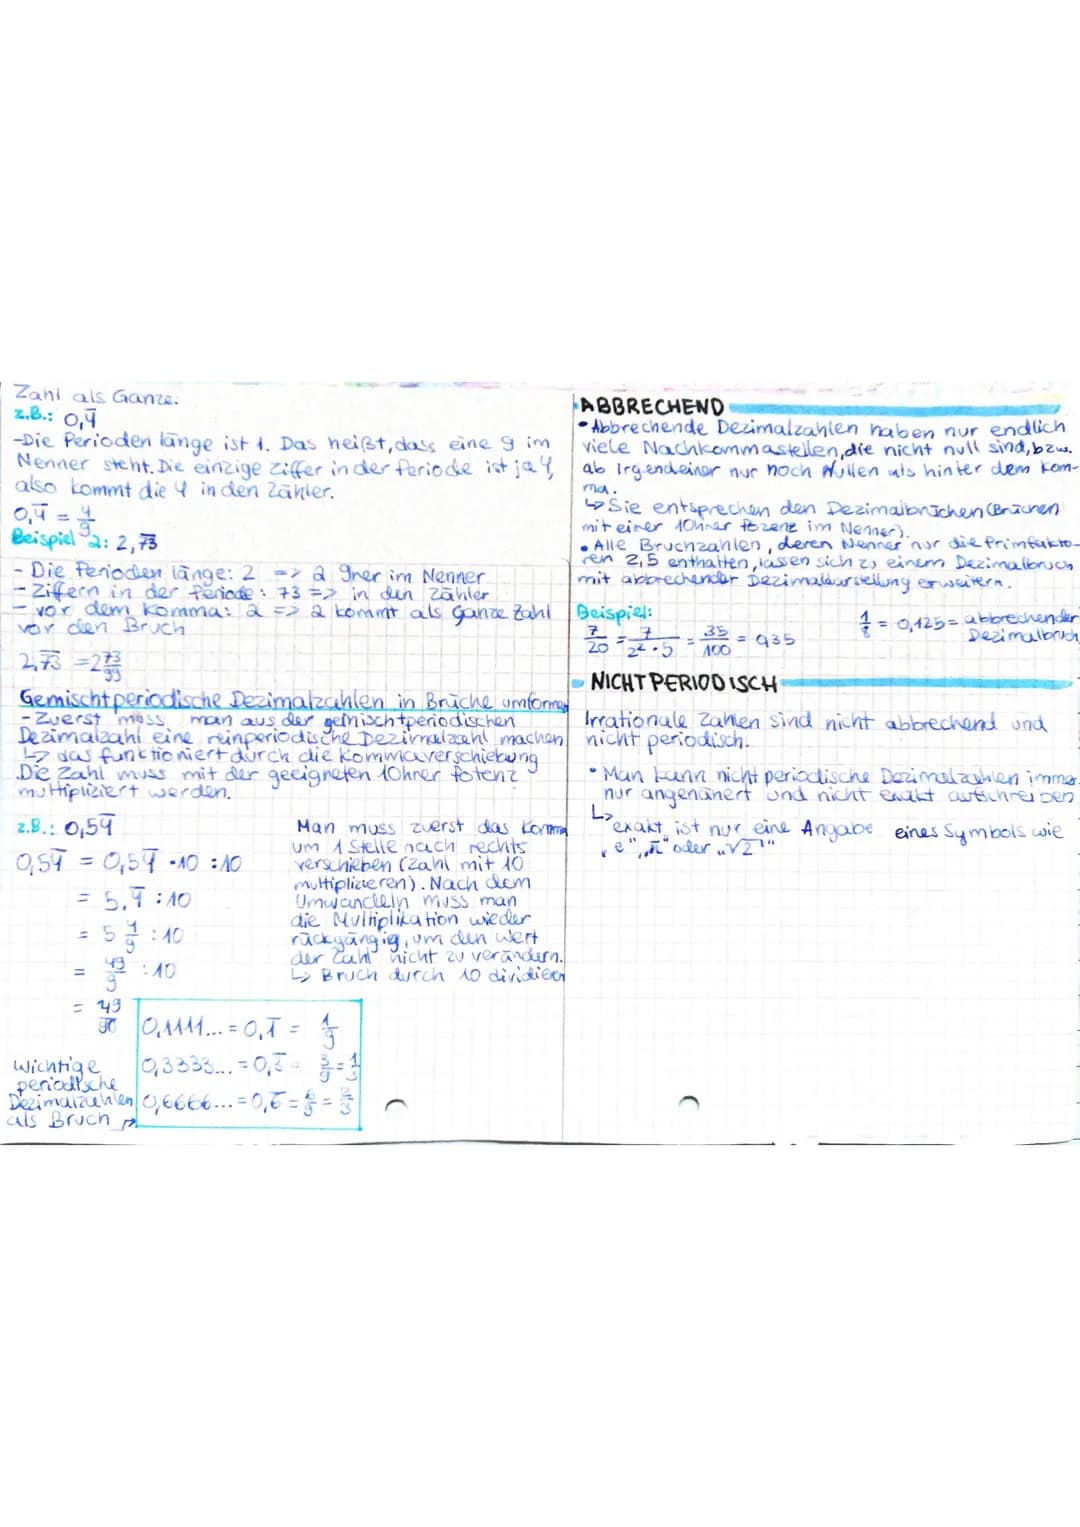 Zahl als Ganze.
z.B.: 0,4̅
-Die Perioden länge ist 1. Das heißt, dass eine 9 im
Nenner steht. Die einzige Ziffer in der Periode ist ja 4,
also kommt die 4 in den Zähler.
0,4̅ = 4/9
Beispiel 2: 2,7̅3̅
- Die Perioden länge: 2 => 2 9ner im Nenner
- Ziffern in der Periode: 73 => in den Zähler
- vor dem Komma: 2 => 2 kommt als Ganze Zahl
vor den Bruch
2,7̅3̅ = 2 73/99
Gemischtperiodische Dezimalzahlen in Brüche umformen
- Zuerst muss man aus der gemischtperiodischen
Dezimalzahl eine reinperiodische Dezimalzahl machen
↳ das funktioniert durch die Kommaverschiebung
Die Zahl muss mit der geeigneten 10ner Potenz
multipliziert werden.
z.B.: 0,54̅
0,54̅ = 0,54̅ ·10 :10
= 5,4̅ :10
= 5 4/9 :10
= 49/9 :10
= 49/90
Man muss zuerst das Komma
um 1 Stelle nach rechts
verschieben (Zahl mit 10
multiplizieren). Nach dem
Umwandeln muss man
die Multiplikation wieder
rückgängig, um den Wert
der Zahl nicht zu verändern.
↳ Bruch durch 10 dividieren
Wichtige
periodische
Dezimalzahlen
als Bruch
0,1111... = 0,1̅ = 1/9
0,3333... = 0,3̅ = 3/9 = 1/3
0,6666... = 0,6̅ = 6/9 = 2/3
ABBRECHEND
• Abbrechende Dezimalzahlen haben nur endlich
viele Nachkommastellen, die nicht null sind, bzw.
ab irgendeiner nur noch Nullen als hinter dem Kom-
ma.
↳ Sie entsprechen den Dezimalbrüchen (Brüchen
mit einer 10ner Potenz im Nenner).
• Alle Bruchzahlen, deren Nenner nur die Primfakto-
ren 2,5 enthalten, lassen sich zu einem Dezimalbruch
mit abbrechender Dezimaldarstellung erweitern.
Beispiel:
7/20 = 7/2²·5 = 35/100 = 0,35
1/8 = 0,125 = abbrechender
Dezimalbruch
NICHT PERIODISCH
Irrationale Zahlen sind nicht abbrechend und
nicht periodisch.
• Man kann nicht periodische Dezimalzahlen immer
nur angenähert und nicht exakt aufschreiben
↳ exakt ist nur eine Angabe eines Symbols wie
„e", „π" oder „√2"